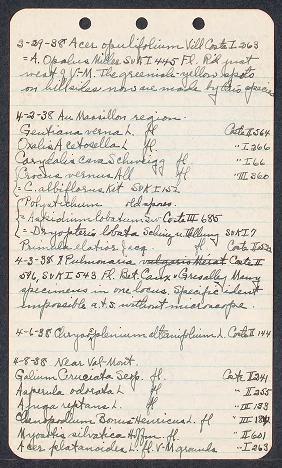 3-29-38 Acer opulifolium Vill Coste I 263
= A. Opalus Miller SuK I 445 Fl. Rd. just
west of V-M. The green-yellow spots
on hillsides now are made by this species
4-2-38 Au Mooillon region.
Gentiana verna L. fl. Coste II 564
Oxalis Acetosella L. fl. " I 266
Corydalis cava Schweigg fl " I 66
Crocus vernus All fl " III 360
= C. albiflorus Kit SuK I 152
Polystichum old spores.
= Aspidium lobatum Sw Coste III 685
= Dryopteris lobata Schinz u. Thellung SuK I 7
Primula elatior Jacq fl Coste II
4-3-38 ? Pulmonaria vulgaris Mérat Coste II
596, SuK I 543 Fl. Bet. Caux & Gresalley Many
specimens in one locus. Specific ident
impossible a.t.s. without microscope.
4-6-38 Chrysosplenium alternifolium L. Coste II 144
4-8-38 Near Val-Mont.
Galium Cruciata Scop. fl. Coste II 241
Asperula odorata L fl. " II 255
Ajuga reptans L. fl. " III 133
Chenopodium Bonus Henricus L. fl " III
Myosotis silvatica Hoffm. fl. " II 601
Acer platanoides L. fl. V-M grounds " I 263